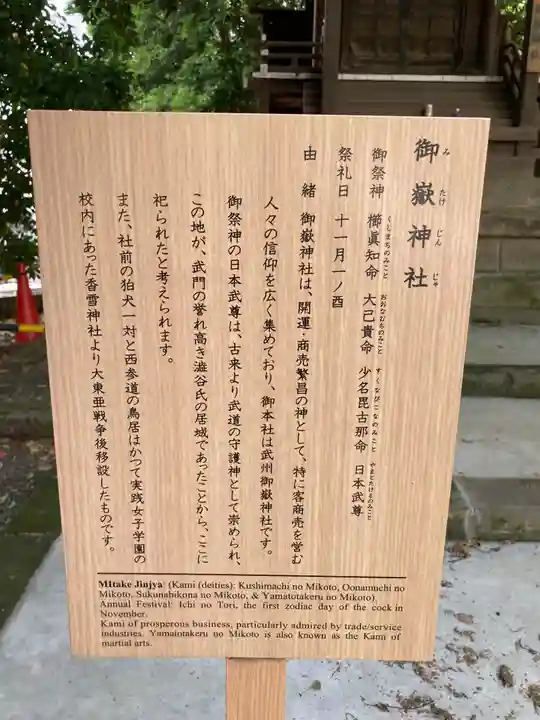 御嶽神社
み たけ じん じゃ
御祭神 櫛眞知命 大己貴命 少名毘古那命 日本武尊
くしまちのみこと おおなむちのみこと すくなびこなのみこと やまとたけるのみこと
祭礼日 十一月一ノ酉
由 緒 御嶽神社は、開運・商売繁昌の神として、特に客商売を営む
人々の信仰を広く集めており、御本社は武州御嶽神社です。
御祭神の日本武尊は、古来より武道の守護神として崇められ、
この地が、武門の誉れ高き澁谷氏の居城であったことから、ここに
祀られたと考えられます。
また、社前の狛犬一対と西参道の鳥居はかつて実践女子学園の
校内にあった香雪神社より大東亜戦争後移設したものです。
MItake Jinjya: (Kami (deities): Kushimachi no Mikoto, Oonamuchi no
Mikoto, Sukunabikona no Mikoto, & Yamatotakeru no Mikoto)
Annual Festival: Ichi no Tori, the first zodiac day of the cock in
November.
Kami of prosperous business, particularly admired by trade/service
industries. Yamatotakeru no Mikoto is also known as the Kami of
martial arts.